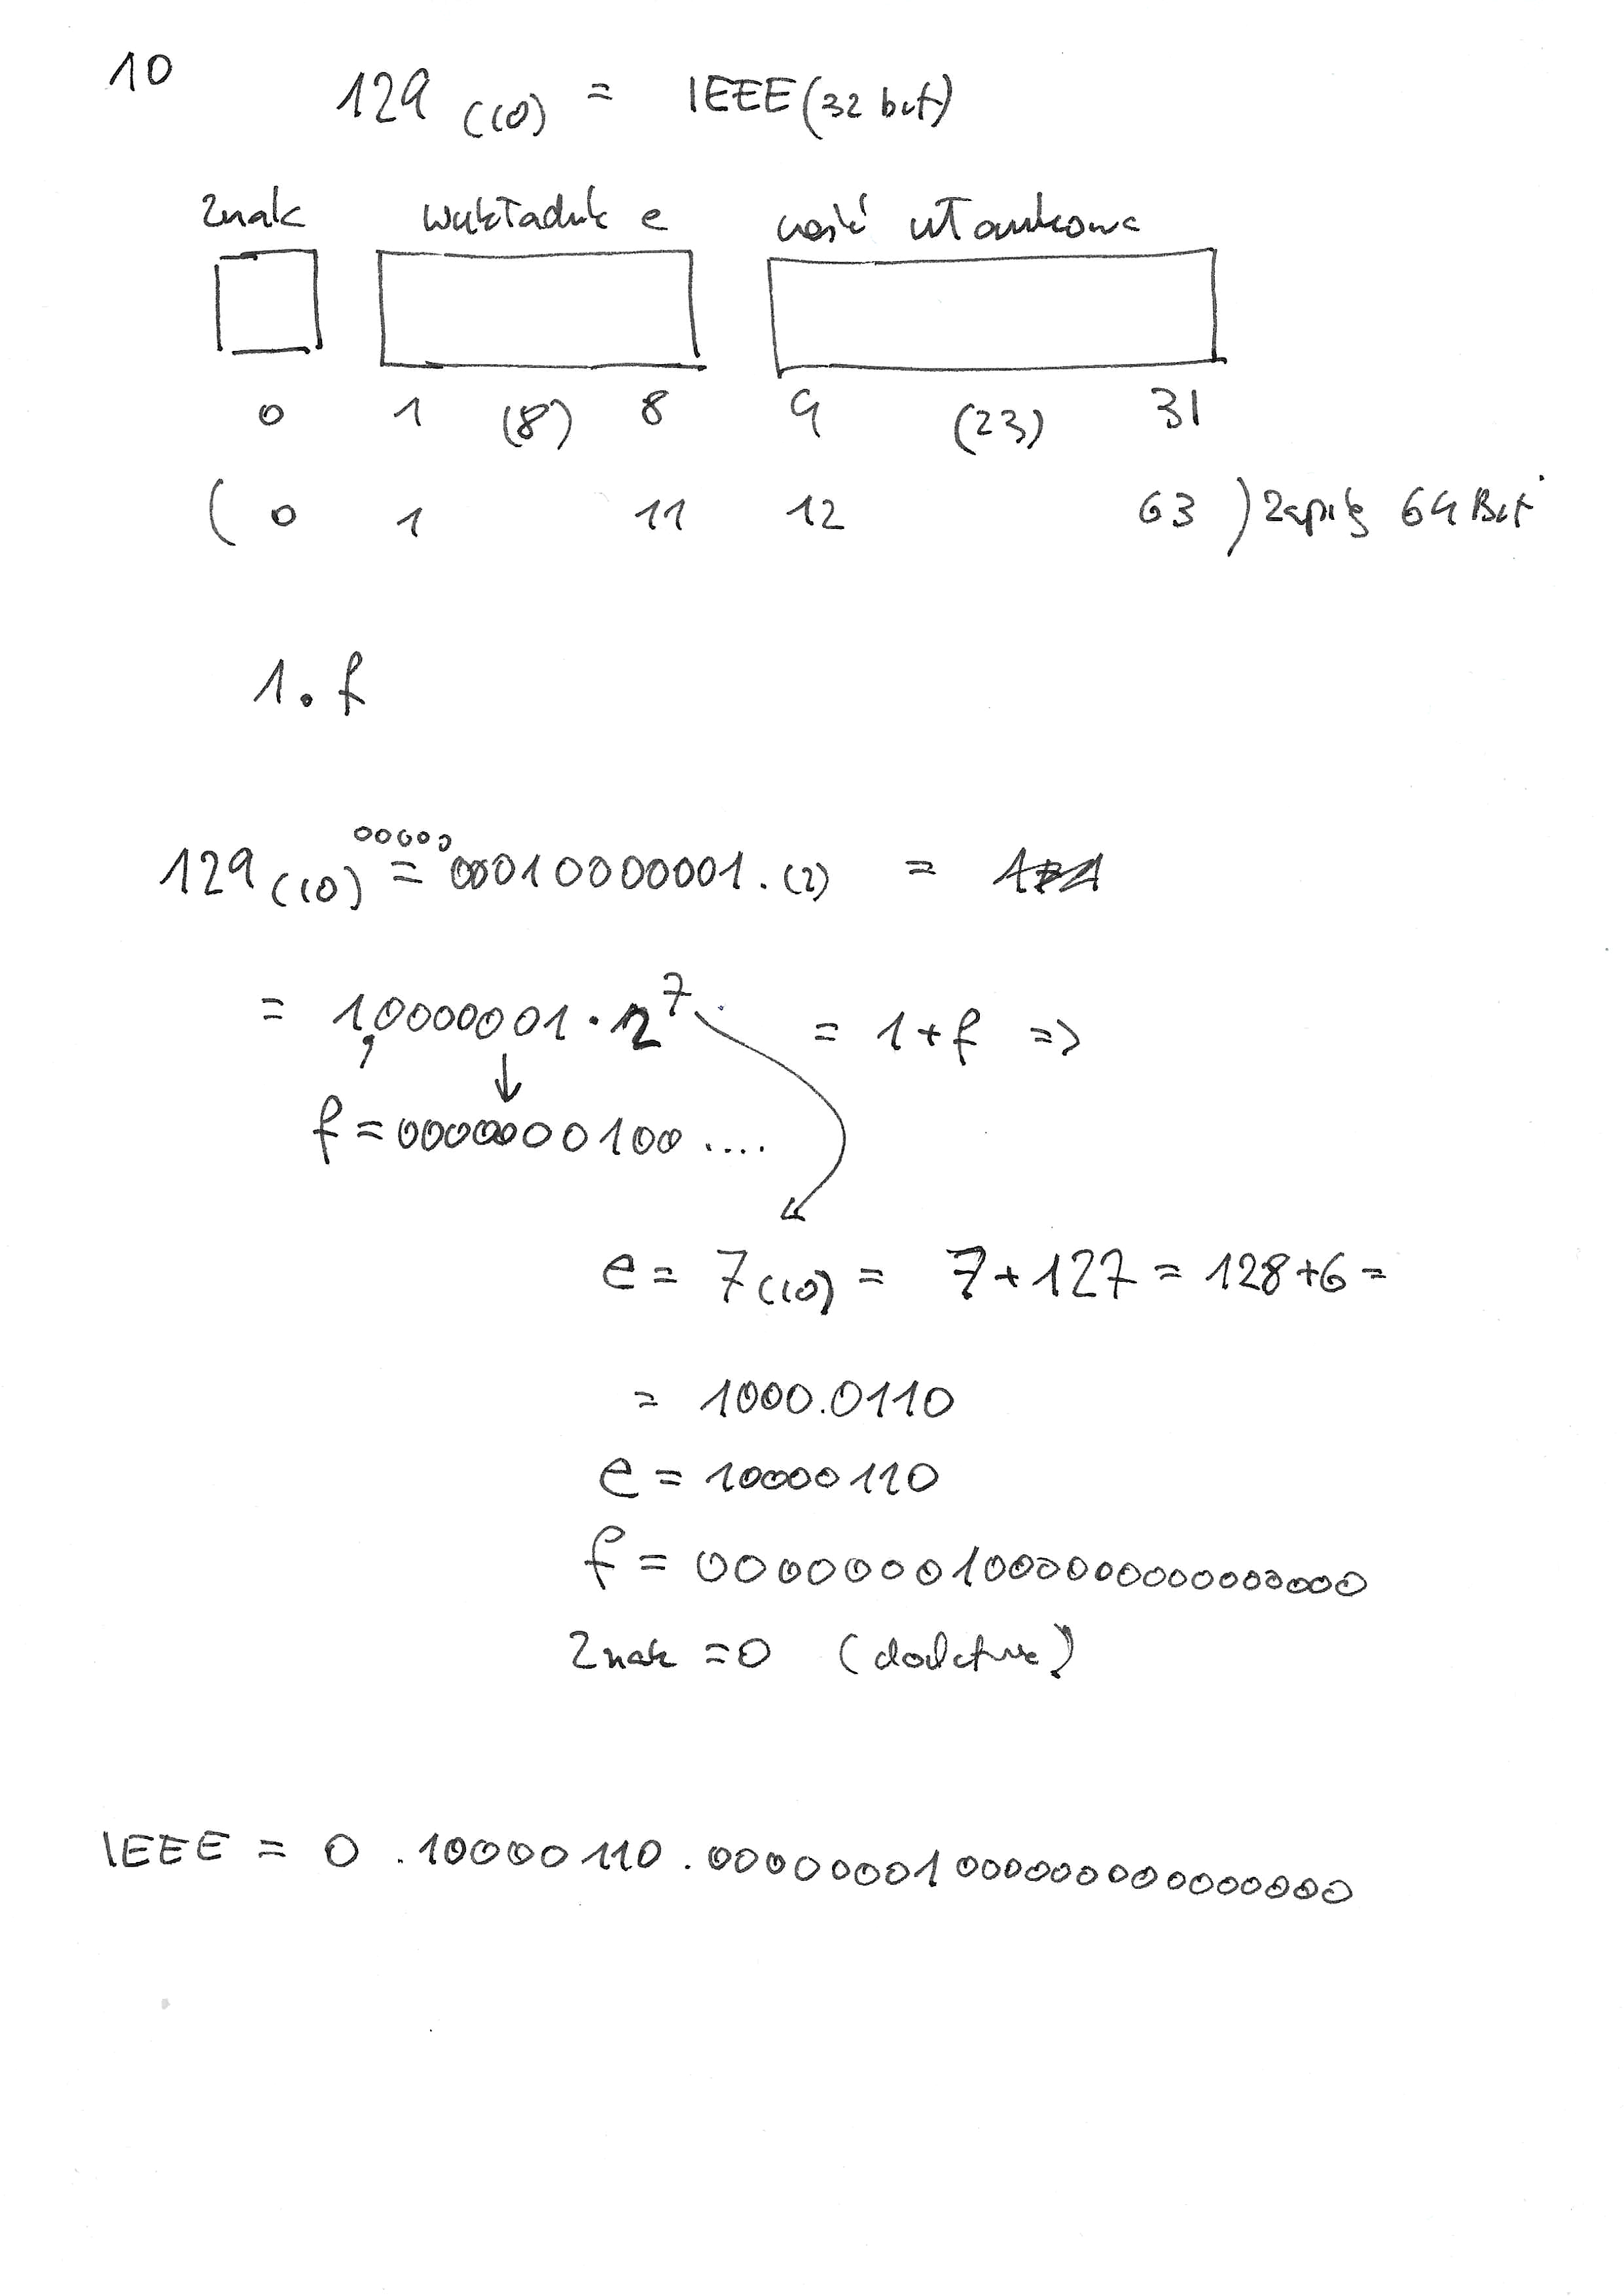 10
129 (10) = IEEE (32 bit)
znak wykładnik e część ułamkowa
0 1 (8) 8 9 (23) 31
( 0 1 11 12 63 ) Zapis 64 Bit
1.f
00000
129 (10) = 00010000001. (2) =
= 1,0000001 · 2^7 = 1 + f =>
f = 0000000100 ....
e = 7 (10) = 7 + 127 = 128 + 6 =
= 1000.0110
e = 10000110
f = 00000001000000000000000
Znak = 0 (dodatnie)
IEEE = 0 . 10000110 . 00000001000000000000000